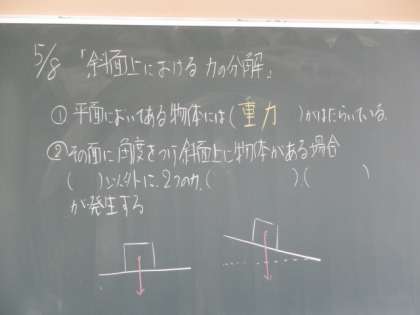 5/8 「斜面上における力の分解」
① 平面においてある物体には(重力)がはたらいている.
② その面に角度をつけ斜面上に物体がある場合
( )以外に、2つの力、( )、( )
が発生する